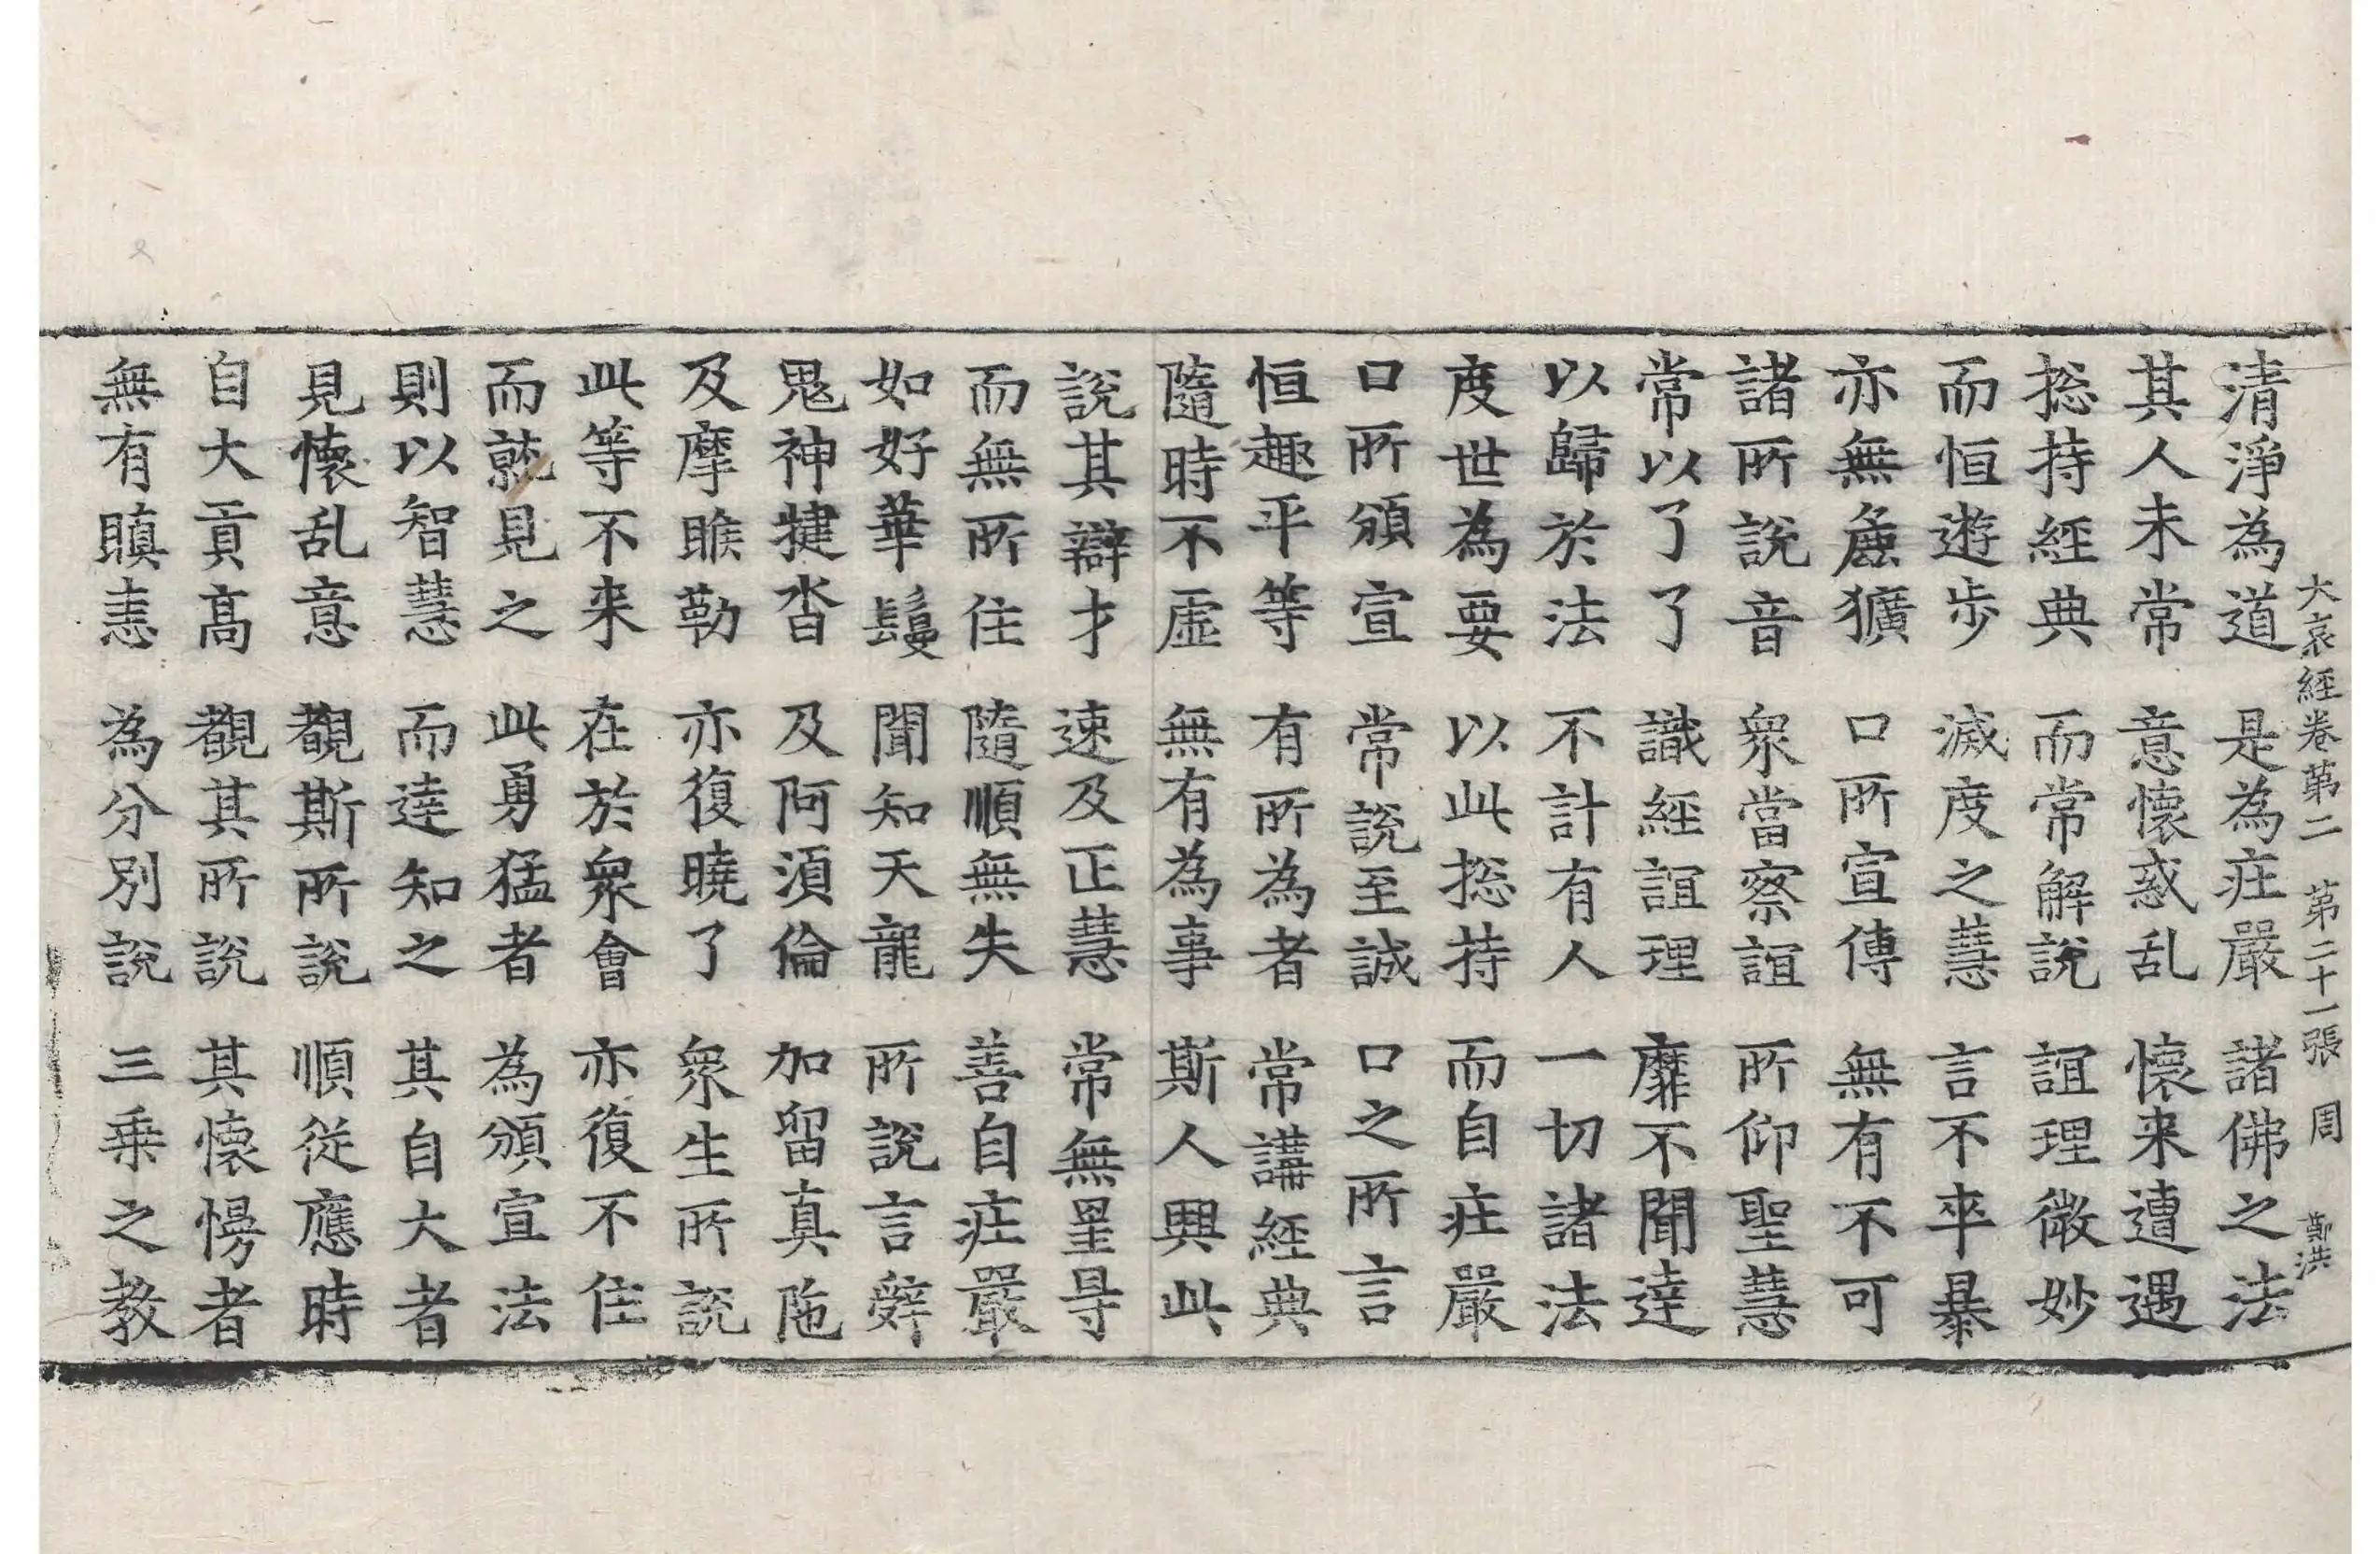 大哀經卷第二 第二十一張 周 鄭洪
清淨為道 是為庄嚴 諸佛之法
其人未常 意懷惑乱 懷来遭遇
捴持經典 而常解說 誼理微妙
而恒遊步 滅度之慧 言不卒暴
亦無麁獷 口所宣傳 無有不可
諸所說音 衆當察誼 所仰聖慧
常以了了 識經誼理 靡不聞達
以歸於法 不計有人 一切諸法
度世為要 以此捴持 而自庄嚴
口所頒宣 常說至誠 口之所言
恒趣平等 有所為者 常講經典
隨時不虛 無有為事 斯人興此
說其辯才 速及正慧 常無罣㝵
而無所住 隨順無失 善自庄嚴
如好華鬘 聞知天龍 所說言辝
鬼神揵沓 及阿須倫 加留真陁
及摩睺勒 亦復曉了 衆生所說
此等不来 在於衆會 亦復不住
而就見之 此勇猛者 為頒宣法
則以智慧 而達知之 其自大者
見懷乱意 覩斯所說 順從應時
自大貢髙 覩其所說 其懷慢者
無有瞋恚 為分別說 三乗之教